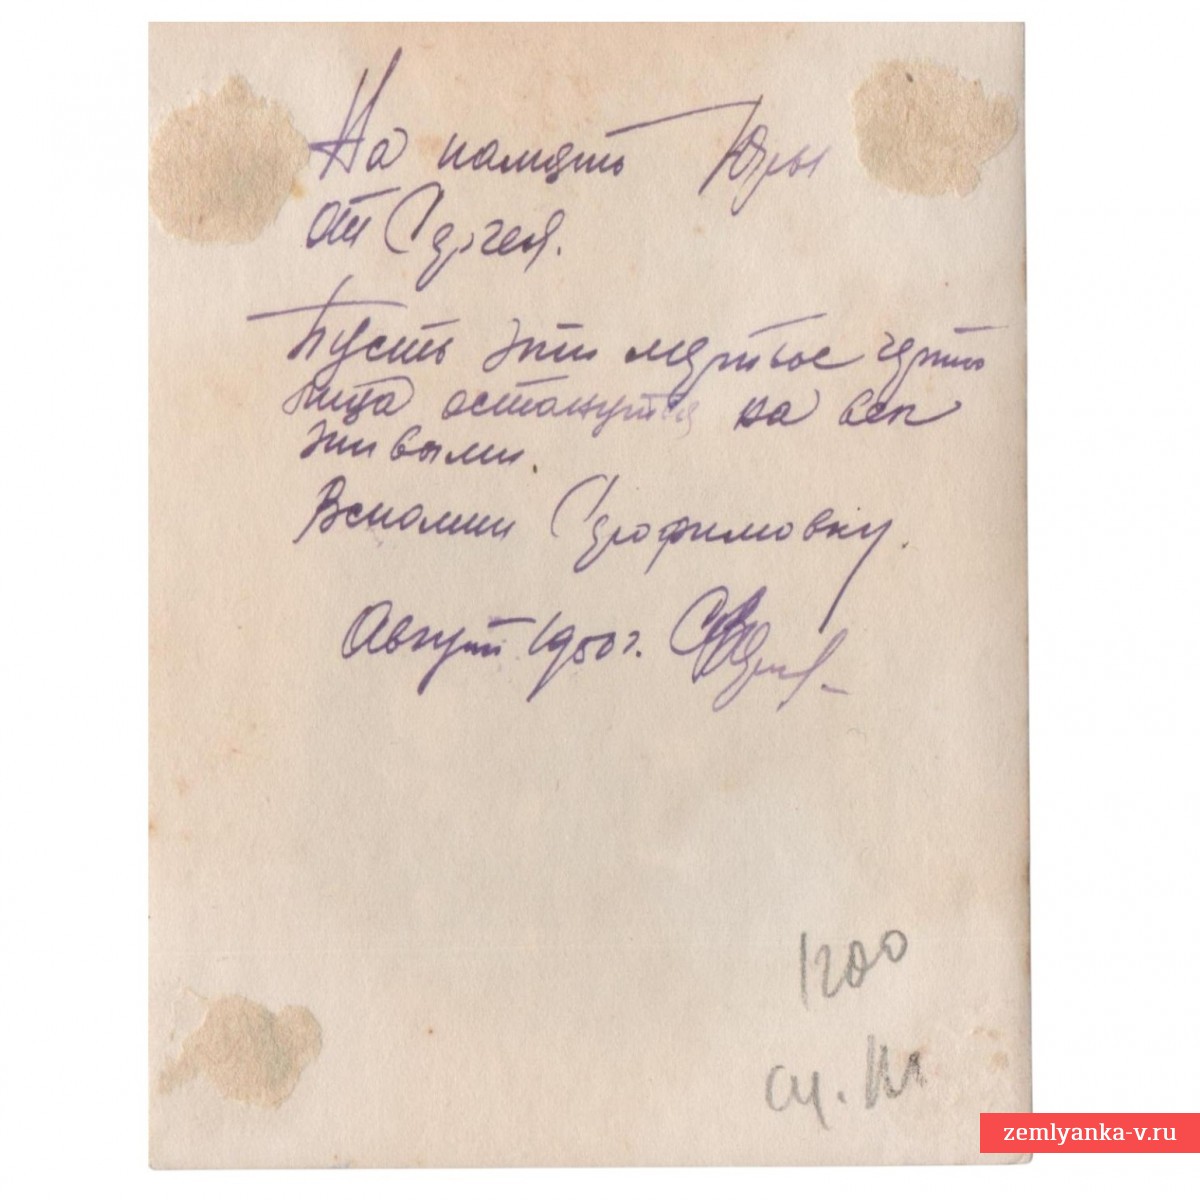 На память Юры
от Сергея.
Пусть эти мертвые черты
лица останутся на век
живыми.
Вспомни Серафимовку.
Август 1950 г.
1200
сч.
zemlyanka-v.ru